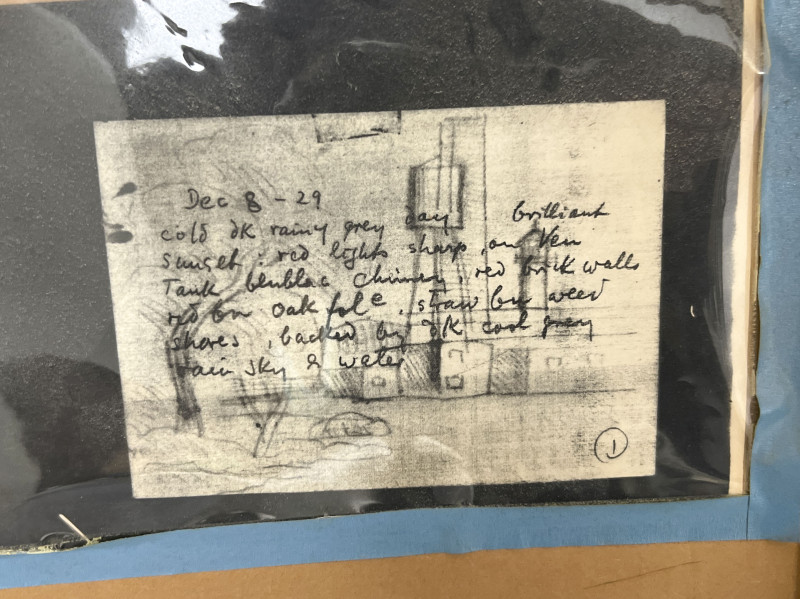 Dec 8 - 29
cold dk rainy grey day brilliant
sunset: red lights sharp, on Ven
Tank blublac chimney red brick walls
red brn oak fole, straw brn weed
shores, backed by dk cool grey
rain sky & water
1